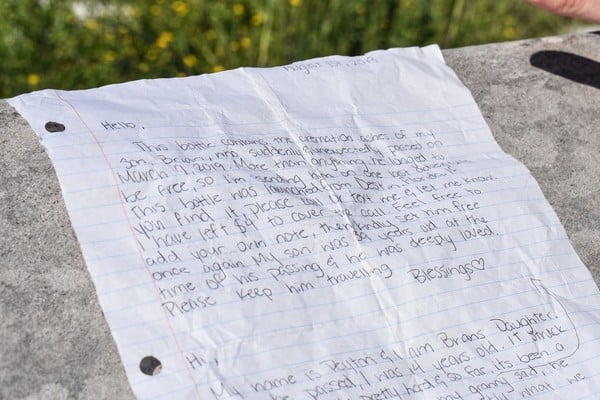 August 1st, 2019
Hello,
This bottle contains the cremation ashes of my
son, Brian, who suddenly & unexpectedly passed on
March 9, 2019. More than anything he longed to
be free, so I'm sending him on one last
This bottle was launched from Destin
you find it please call or text me & let me know
I have left $ to cover the call. Feel free to
add your own note, then kindly set him free
once again. My son was 39 years old at the
time of his passing & he was deeply loved.
Please keep him travelling Blessings♡
Hi,
My name is Peyton & I am Brians Daughter.
he passed, I was 14 years old. It struck
pretty hard & so far its been a
my granny said, he
what we